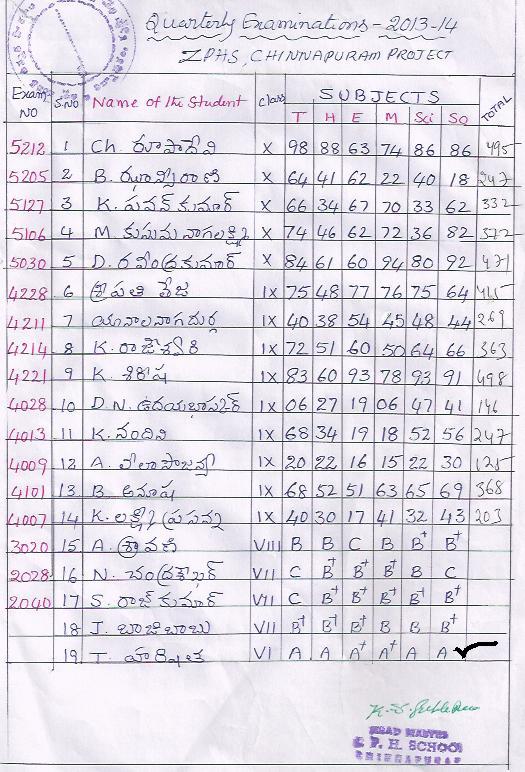 Quarterly Examinations - 2013-14
ZPHS, CHINNAPURAM PROJECT
Exam NO S.NO Name of the Student class SUBJECTS TOTAL
T H E M Sci So
5212 1 Ch. రూపాదేవి X 98 88 63 74 86 86 495
5205 2 B. ఝాన్సీ రాణి X 64 41 62 22 40 18 247
5127 3 K. పవన్ కుమార్ X 66 34 67 70 33 62 332
5106 4 M. కుసుమ నాగలక్ష్మి X 74 46 62 72 36 82
5030 5 D. రవీంద్రకుమార్ X 84 61 60 94 80 92 471
4228 6 శ్రీపతి తేజ IX 75 48 77 76 75 64
4211 7 యానాల నాగదుర్గ IX 40 38 54 45 48 44 269
4214 8 K. రాజేశ్వరి IX 72 51 60 50 64 66 363
4221 9 K. శిరీష IX 83 60 93 78 93 91 498
4028 10 D.N. ఉదయభాస్కర్ IX 06 27 19 06 47 41 146
4013 11 K. నందిని IX 68 34 19 18 52 56 247
4009 12 A. IX 20 22 16 15 22 30 125
4101 13 B. అనూష IX 68 52 51 63 65 69 368
4007 14 K. లక్ష్మీ ప్రసన్న IX 40 30 17 41 32 43 203
3020 15 A. శ్రావణి VIII B B C B B+ B+
2028 16 N. చంద్రశేఖర్ VII C B+ B+ B+ B C
2040 17 S. రాజ్ కుమార్ VII C B+ B+ B+ B+ B+
18 J. బాజిబాబు VII B+ B+ B+ B B B+
19 T. హారిషిత VI A A A+ A+ A A
HEAD MASTER
Z. P. H. SCHOOL
CHINNAPURAM